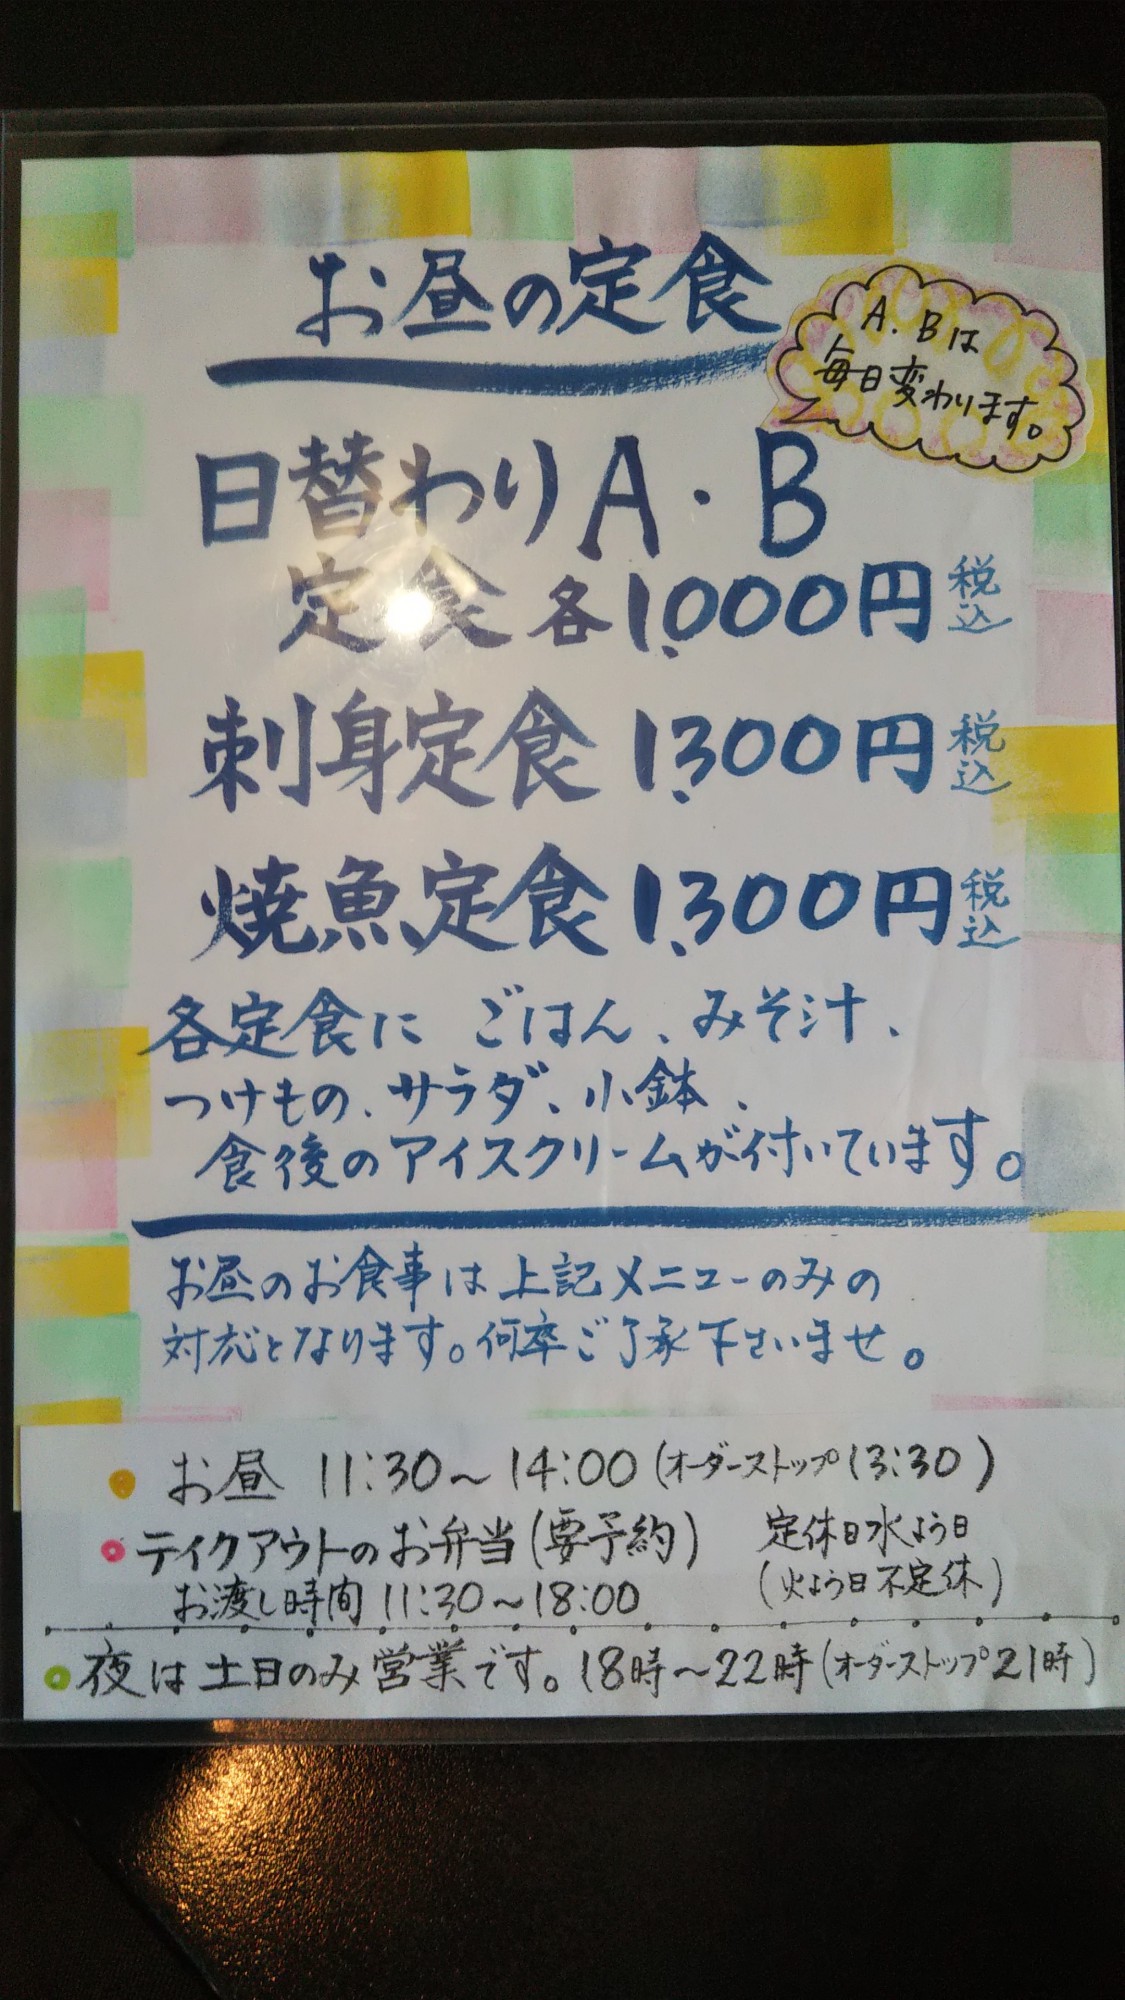 お昼の定食
A.Bは
毎日変わります。
日替わりA・B
定食 各1,000円 税込
刺身定食 1,300円 税込
焼魚定食 1,300円 税込
各定食に ごはん、みそ汁、
つけもの、サラダ、小鉢、
食後のアイスクリームが付いています。
お昼のお食事は上記メニューのみの
対応となります。何卒ご了承下さいませ。
お昼 11:30～14:00(オーダーストップ13:30)
テイクアウトのお弁当(要予約)
お渡し時間 11:30～18:00
定休日水よう日
(火よう日不定休)
夜は土日のみ営業です。18時～22時(オーダーストップ21時)